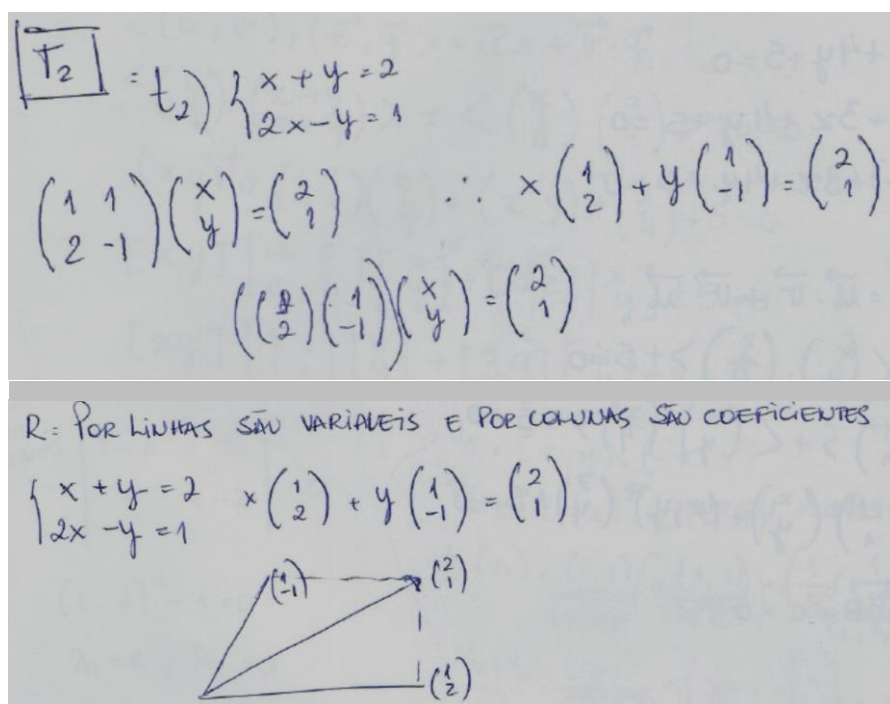 T₂ = t₂) { x + y = 2
2x - y = 1
(1 1
2 -1) (x
y) = (2
1) ∴ x (1
2) + y (1
-1) = (2
1)
((1
2) (1
-1)) (x
y) = (2
1)
R = POR LINHAS SÃO VARIAVEIS E POR COLUNAS SÃO COEFICIENTES
{ x + y = 2
2x - y = 1 x (1
2) + y (1
-1) = (2
1)
(1
-1) (2
1)
(1
2)